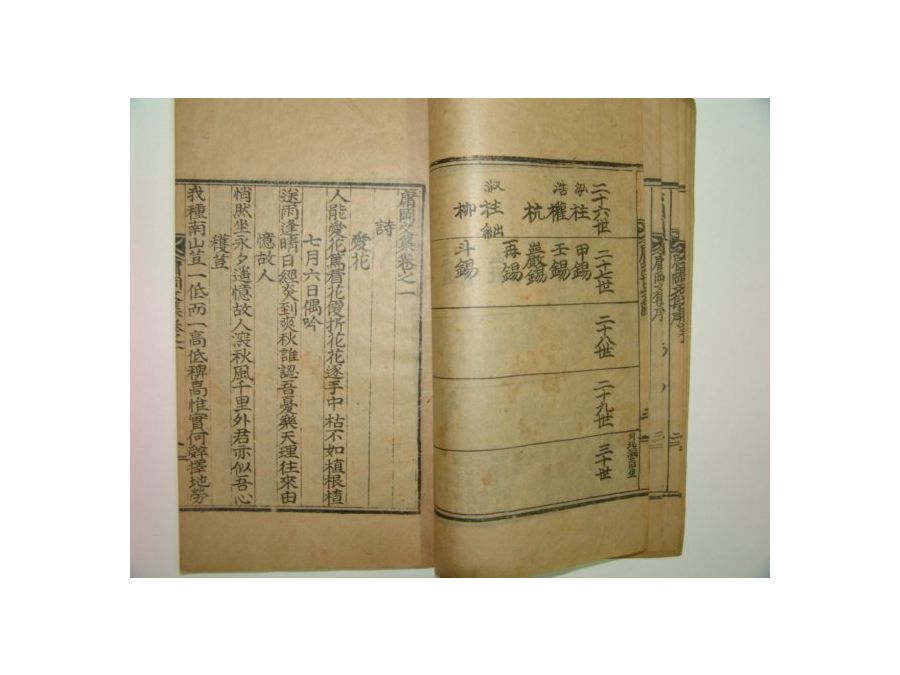 二十六世
泓柱
浩權
杭
淑柱
柳
二十七世
甲錫
壬錫
巖錫
再錫
斗錫
二十八世
二十九世
三十世
庸岡文集卷之一
詩
愛花
人能愛花篤看花便折花花逐手中枯不如植根植
七月六日偶吟
送雨逢晴日經炎到爽秋誰認吾憂樂天理往來由
憶故人
悄然坐永夕遙憶故人深秋風千里外君亦似吾心
穫荳
我種南山荳一低而一高低稗高惟實何辭擇地勞